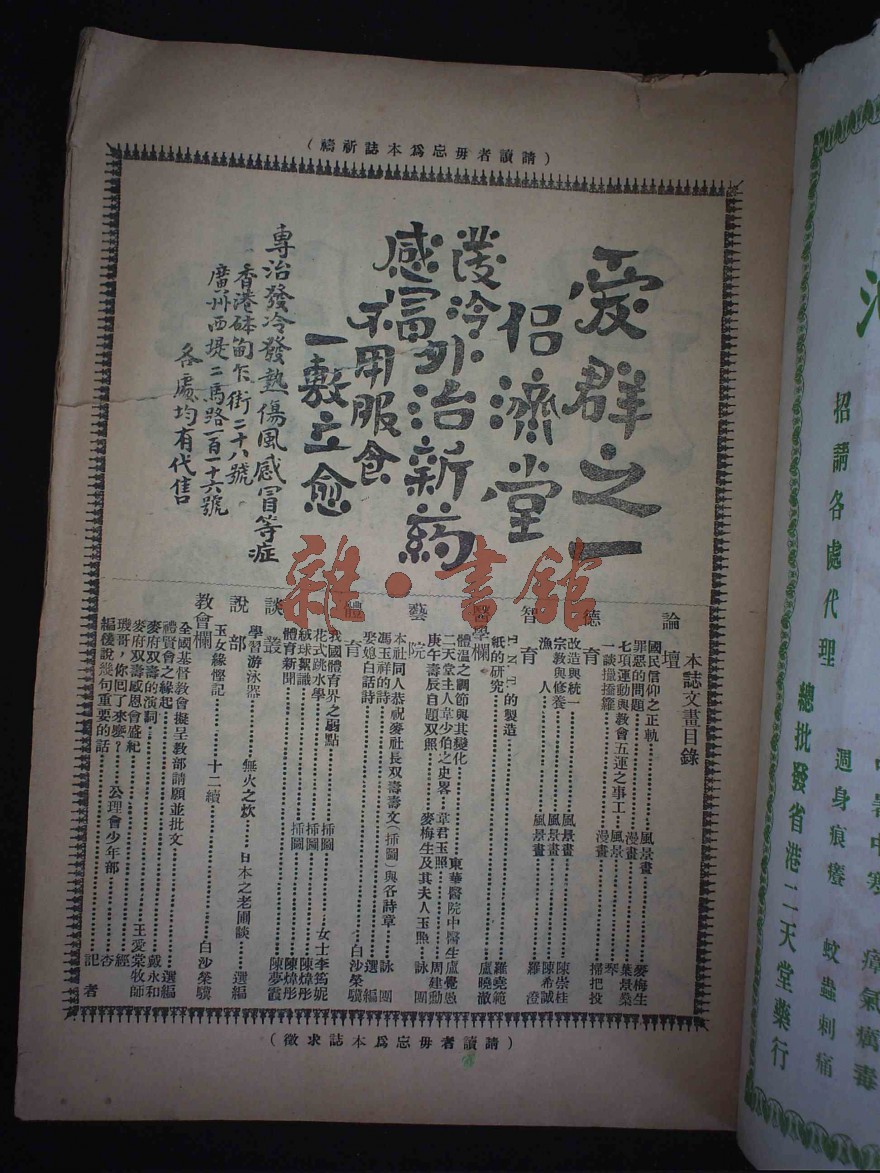 （請讀者毋忘爲本誌祈禱）
愛群之一
侶濟堂
發冷外治新葯
感冒
不用服食
一敷立愈
專治發冷發熱傷風感冒等症
香港砵甸乍街二十八號
廣州西堤二馬路一百一十六號
各處均有代售
本誌文畫目錄
論壇
國民信仰之正軌 風景畫 麥梅生
罪惡的問題 漫畫 葉景桑
七項運動與教會五運之事工 風景 琴
一談攝播籮 漫畫 掃把投
德育
改造與統一 風景畫 陳崇桂
宗教與修養 風景畫 陳希誠
漁人 風景畫 羅澄
智育
T.N.T.的製造 羅堯範
紙的研究 盧曉澈
醫學欄
體溫之調節與其變化 東華醫院中醫生盧覺愚
二天堂主人韋少伯之史畧 韋君玉照 周建勳
庚午壽辰自題双照 麥梅生及其夫人玉照 詠團
藝院
本社同人恭祝麥社長双壽壽文（插圖）與各詩章 詠團
馮玉祥的詩 選編
娶媳白話詩 白沙榮驥
體育
我國體育界之弱點 插圖 女士李筠妮
花式跳水學 插圖 陳煒彤
絨球絮識 插圖 陳煒彤
體育新聞 陳夢靈
談叢
學習游泳器 無火之炊 日本之老圃談 選編
說部
玉女緣慳記 十二續 白沙榮驥
教會欄
全國基督教會擬呈教部請願並批文 選編
禮賢會之緣起 王愛棠牧師
麥府双壽的演詞 戴永和
麥府双壽感恩會盛紀 經
璣哥，你囘了來麼？ 公理會少年部 杏
編後說幾句重要的話 記者
（請讀者毋忘爲本誌求徵）
雜·書館
招請各處代理
總批發省港二天堂藥行
週身痕癢
蚊蟲刺痛
瘴氣癘毒